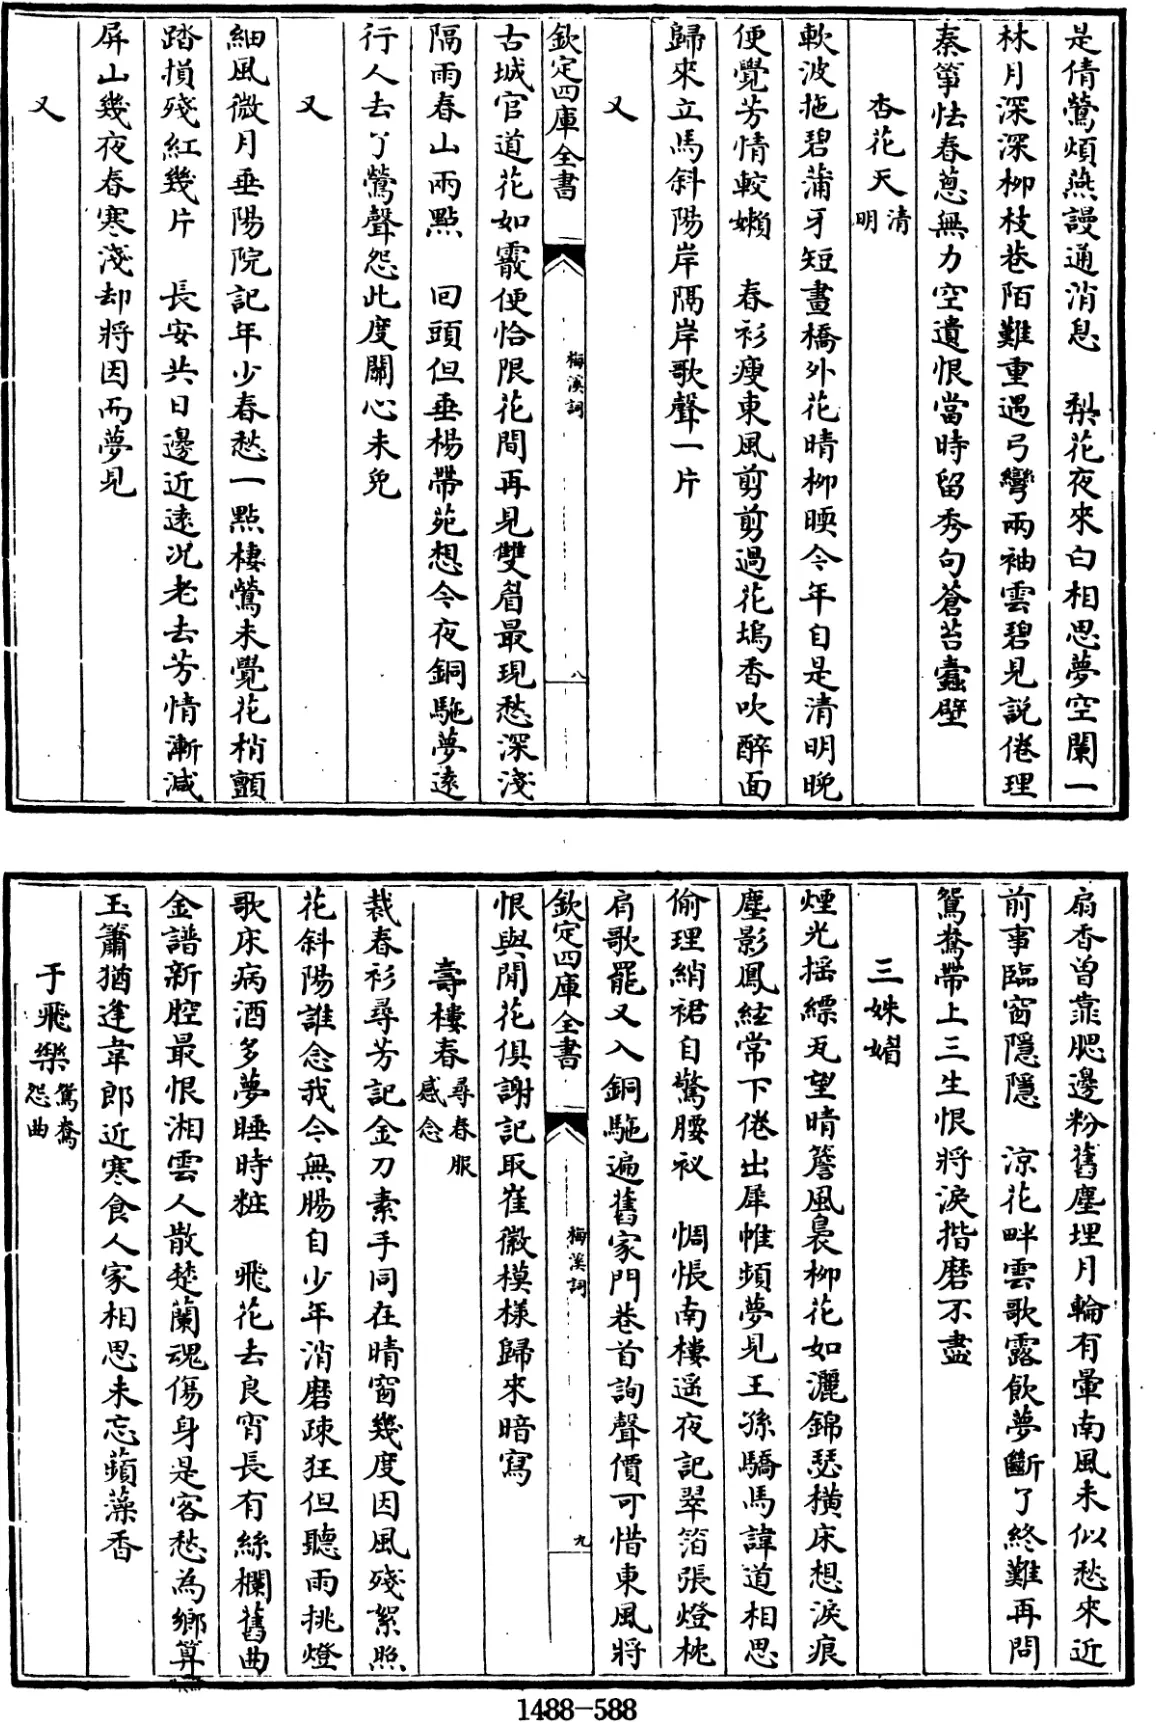 是倩鶯煩燕謾通消息　梨花夜來白相思夢空闌一
林月深深柳枝巷陌難重遇弓彎兩袖雲碧見説倦理
秦箏怯春葱無力空遺恨當時留秀句蒼苔蠹壁
杏花天清明
軟波拖碧蒲牙短畫橋外花晴柳暖今年自是清明晚
便覺芳情較嬾　春衫瘦東風剪剪過花塢香吹醉面
歸來立馬斜陽岸隔岸歌聲一片
又
欽定四庫全書　梅溪詞　八
古城官道花如霰便恰限花間再見雙眉最現愁深淺
隔雨春山兩點　回頭但垂楊帶苑想今夜銅駞夢遠
行人去了鶯聲怨此度關心未免
又
細風微月垂陽院記年少春愁一點棲鶯未覺花梢顫
踏損殘紅幾片　長安共日邊近遠况老去芳情漸減
屏山幾夜春寒淺却將因而夢見
又
扇香曽靠腮邊粉舊塵埋月輪有暈南風未似愁來近
前事臨窗隱隱　涼花畔雲歌露飲夢斷了終難再問
鴛鴦帶上三生恨將淚揩磨不盡
三姝媚
煙光揺縹瓦望晴簷風裊柳花如灑錦瑟橫床想淚痕
塵影鳳絃常下倦出犀帷頻夢見王孫驕馬諱道相思
偷理綃裙自驚腰衩　惆悵南樓遥夜記翠箔張燈枕
肩歌罷又入銅駞遍舊家門巷首詢聲價可惜東風將
欽定四庫全書　梅溪詞　九
恨與閒花俱謝記取崔徽模様歸來暗寫
壽樓春尋春服感念
裁春衫尋芳記金刀素手同在晴窗幾度因風殘絮照
花斜陽誰念我今無腸自少年消磨疎狂但聽雨挑燈
歌床病酒多夢睡時粧　飛花去良宵長有絲欄舊曲
金譜新腔最恨湘雲人散楚蘭魂傷身是客愁為鄉算
玉簫猶逢韋郎近寒食人家相思未忘蘋藻香
于飛樂鴛鴦怨曲
1488-588